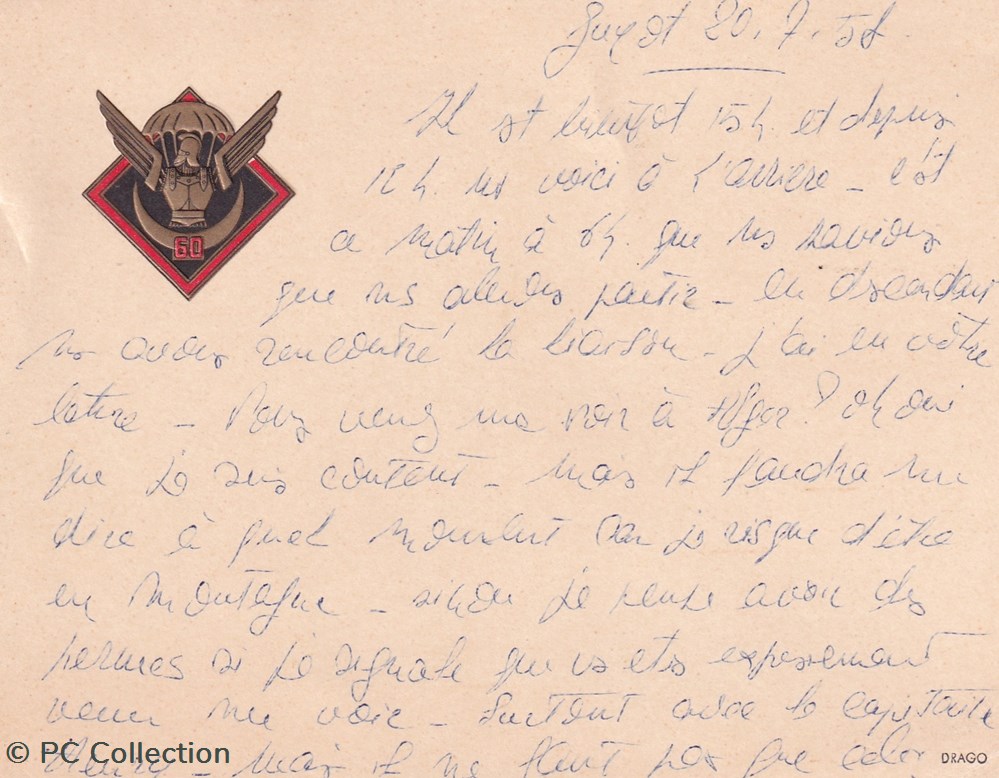 Guyot 20.7.58.
Il est bientôt 15 h. et depuis
12 h. ns voici à l'arrière - c'est
ce matin à 6h. que ns savions
que ns allions partir - en descendant
60
ns avons rencontré la liaison - j'ai eu votre
lettre - Vous venez me voir à Alger? Oh oui
que je suis content - mais il faudra me
dire à quel moment car je risque d'être
en montagne - sinon je pense avoir des
permes si je signale que vs etes expressement
venu me voir - surtout avec le capitaine
- mais il ne faut pas que cela
© PC Collection
DRAGO